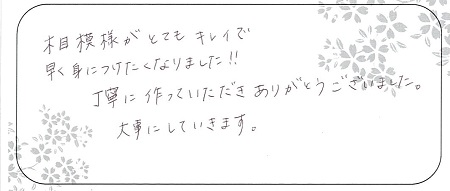 相模様がとても キレイで
早く身につけたくなりました!!
丁寧に作っていただきありがとうございました。
大事にしていきます。